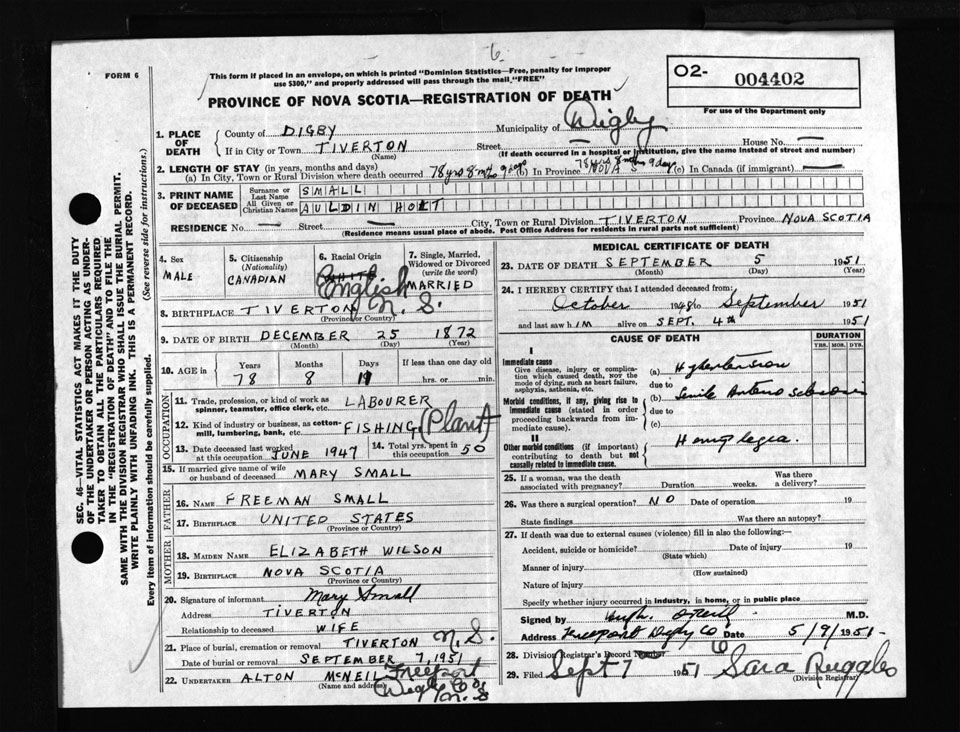 6
FORM 6
This form if placed in an envelope, on which is printed "Dominion Statistics—Free, penalty for improper
use $300," and properly addressed will pass through the mail "FREE"
O2- 004402
For use of the Department only
PROVINCE OF NOVA SCOTIA—REGISTRATION OF DEATH
1. PLACE OF DEATH
County of DIGBY Municipality of Digby
If in City or Town TIVERTON Street — House No. —
(Name) (If death occurred in a hospital or institution, give the name instead of street and number)
2. LENGTH OF STAY (in years, months and days)
(a) In City, Town or Rural Division where death occurred 78 yrs 8 mths 9 days (b) In Province NOVA S 78 yrs 8 mths 9 days (c) In Canada (if immigrant) —
3. PRINT NAME OF DECEASED
Surname or Last Name SMALL
All Given or Christian Names AULDIN HOLT
RESIDENCE No. — Street — City, Town or Rural Division TIVERTON Province NOVA SCOTIA
(Residence means usual place of abode. Post Office Address for residents in rural parts not sufficient)
4. Sex MALE
5. Citizenship (Nationality) CANADIAN
6. Racial Origin WHITE English
7. Single, Married, Widowed or Divorced (write the word) MARRIED
8. BIRTHPLACE TIVERTON N. S.
(Province or Country)
9. DATE OF BIRTH DECEMBER 25 1872
(Month) (Day) (Year)
10. AGE in Years Months Days If less than one day old
78 8 11 hrs. or min.
OCCUPATION
11. Trade, profession, or kind of work as spinner, teamster, office clerk, etc. LABOURER
12. Kind of industry or business, as cotton-mill, lumbering, bank, etc. FISHING (Plant)
13. Date deceased last worked at this occupation JUNE 1947
14. Total yrs. spent in this occupation 50
15. If married give name of wife or husband of deceased MARY SMALL
FATHER
16. NAME FREEMAN SMALL
17. BIRTHPLACE UNITED STATES
(Province or Country)
MOTHER
18. MAIDEN NAME ELIZABETH WILSON
19. BIRTHPLACE NOVA SCOTIA
(Province or Country)
20. Signature of informant Mary Small
Address TIVERTON
Relationship to deceased WIFE
21. Place of burial, cremation or removal TIVERTON N. S.
Date of burial or removal SEPTEMBER 7, 1951
22. UNDERTAKER ALTON McNEIL Freeport
(Name and address) Digby Co. N. S
MEDICAL CERTIFICATE OF DEATH
23. DATE OF DEATH SEPTEMBER 5 1951
(Month) (Day) (Year)
24. I HEREBY CERTIFY that I attended deceased from:
October 1948 to September 1951
and last saw hIM alive on SEPT. 4th 1951
CAUSE OF DEATH DURATION
YRS. MOS. DYS.
I
Immediate cause (a) Hypertension
Give disease, injury or complication which caused death, NOT the mode of dying, such as heart failure, asphyxia, asthenia, etc.
due to
Morbid conditions, if any, giving rise to immediate cause (stated in order proceeding backwards from immediate cause).
(b) Senile Arterio sclerosis
due to
(c)
II
Other morbid conditions (if important) contributing to death but not causally related to immediate cause.
Hemiplegia.
25. If a woman, was the death associated with pregnancy? Duration weeks. Was there a delivery?
26. Was there a surgical operation? NO Date of operation 19
State findings Was there an autopsy?
27. If death was due to external causes (violence) fill in also the following:
Accident, suicide or homicide? Date of injury 19
(State which)
Manner of injury
(How sustained)
Nature of injury
Specify whether injury occurred in industry, in home, or in public place
Signed by M.D.
Address Freeport Digby Co Date 5/9/1951
28. Division Registrar's Record Number 6
29. Filed Sept 7 1951 Sara Ruggles
(Division Registrar)
SEC. 46—VITAL STATISTICS ACT MAKES IT THE DUTY
OF THE UNDERTAKER OR PERSON ACTING AS UNDER-
TAKER TO OBTAIN ALL THE PARTICULARS REQUIRED
IN THE "REGISTRATION OF DEATH" AND TO FILE THE
SAME WITH THE DIVISION REGISTRAR WHO SHALL ISSUE THE BURIAL PERMIT.
WRITE PLAINLY WITH UNFADING INK. THIS IS A PERMANENT RECORD.
Every item of information should be carefully supplied. (See reverse side for instructions.)